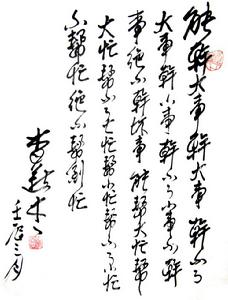 能幹大事幹大事幹不了
大事幹小事幹不了小事不幹
事絕不幹坏事能幫大忙幫
大忙幫不了大忙幫小忙幫不了小忙
不幫忙絕不幫倒忙
李燕杰
壬辰三月